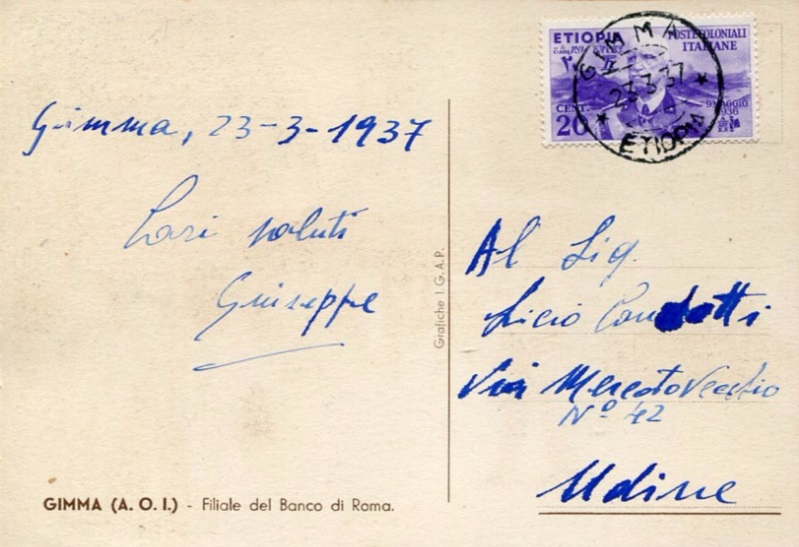 Gimma, 23-3-1937
Cari saluti
Giuseppe
GIMMA (A. O. I.) - Filiale del Banco di Roma.
Grafiche I. G. A. P.
ETIOPIA
POSTE COLONIALI
ITALIANE
CENT.
20
9 MAGGIO
1936
GIMMA
23.3.37
ETIOPIA
Al Sig.
Licio
Via Mercatovecchio
N° 42
Udine